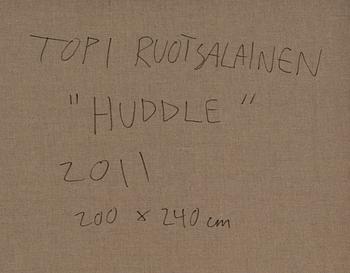 TOPI RUOTSALAINEN
"HUDDLE"
2011
200 x 240 cm